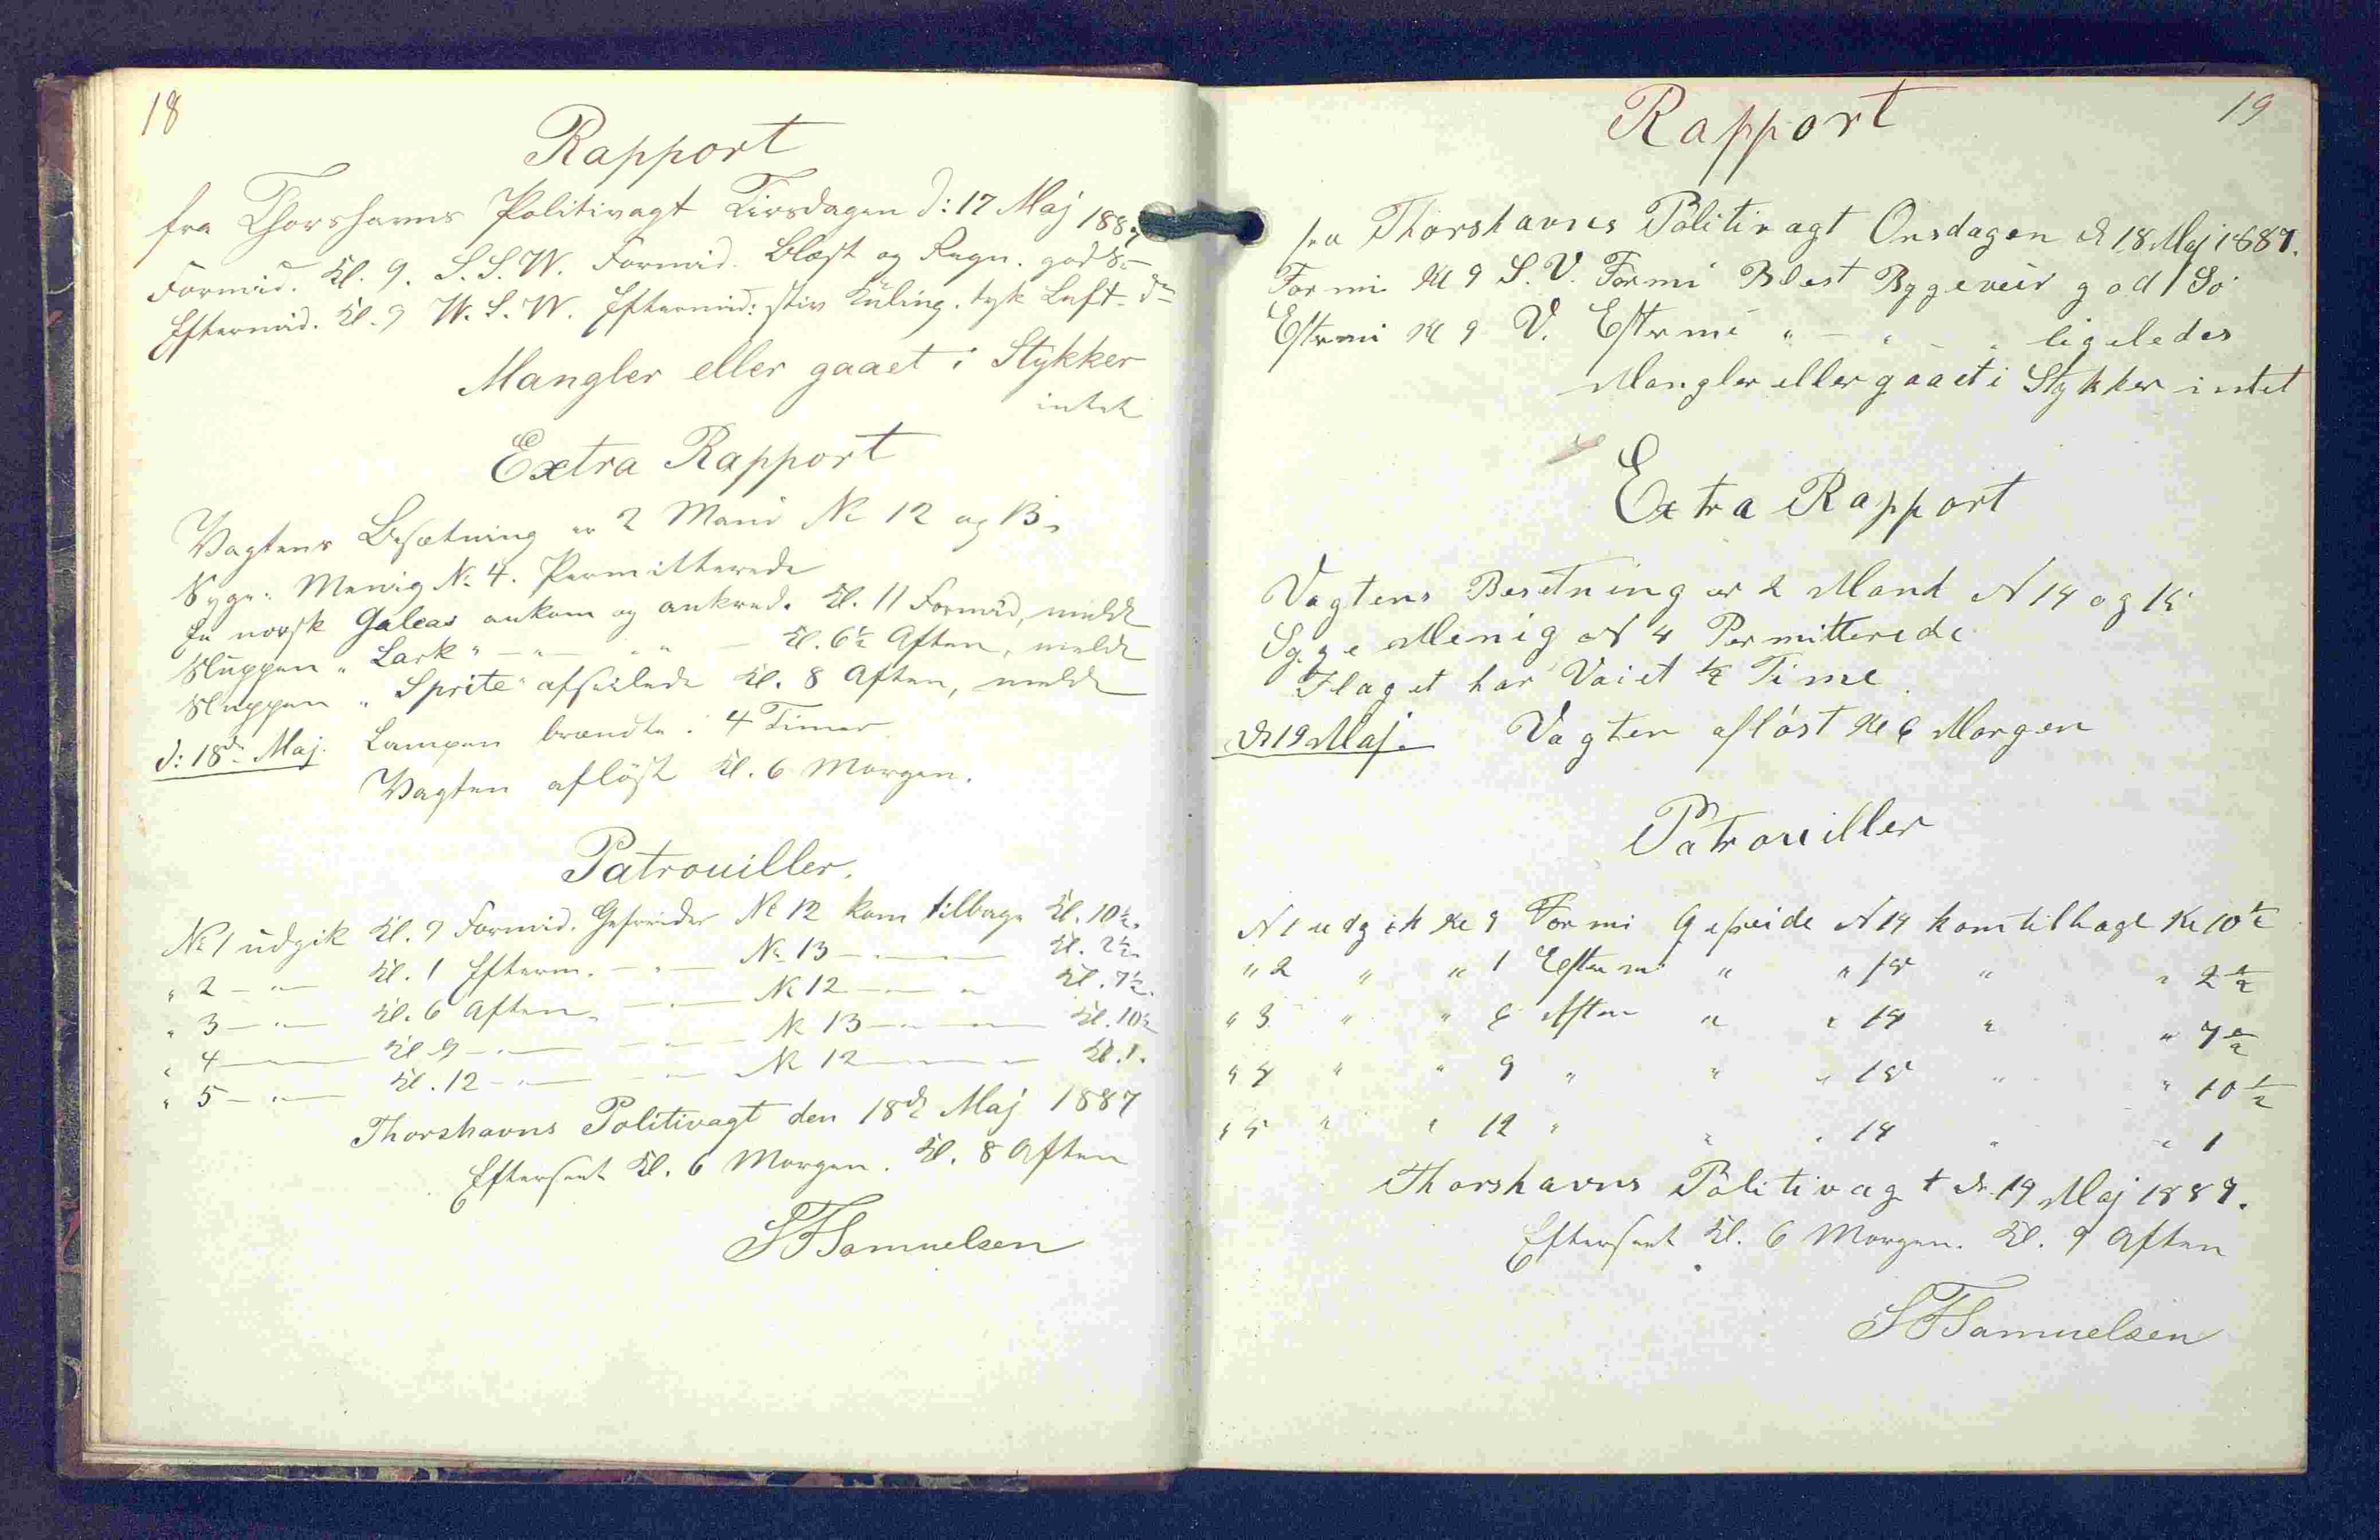 18
Rapport
fra Thorshavns Politivagt Tirsdagen d: 17 Maj 1887
Formid. Kl. 9. S.S.W. Formid. Blæst og Regn. god Sö
Eftermid. Kl. 9 W.S.W. Eftermid: stiv Kuling. tyk Luft - do
Mangler eller gaaet i Stykker
intet
Extra Rapport
Vagtens Besætning er 2 Mand No 12 og 13.
Syge: Menig No 4. Permitterede
En norsk Galeas ankom og ankred. Kl. 11 Formid, meldt
Sluppen "Lark" - " - " " - Kl. 6½ Aften, meldt
Sluppen "Sprite" afseilede Kl. 8 Aften, meldt
d: 18de Maj. Lampen brændte i 4 Timer
Vagten aflöst Kl. 6 Morgen.
Patrouiller.
No 1 udgik Kl. 9 Formid. Gefreider No 12 kom tilbage Kl. 10½.
" 2 - " - Kl. 1 Efterm. - " - No 13 - " - Kl. 2½.
" 3 - " - Kl. 6 Aften. - " - No 12 - " - " Kl. 7½.
" 4 - Kl 9 - " - - " - No 13 - " - Kl. 10½
" 5 - " - Kl. 12 - " - - " - No 12 - " - Kl. 1.
Thorshavns Politivagt den 18de Maj 1887
Efterseet Kl. 6 Morgen. Kl. 8 Aften
SFSamuelsen
19
Rapport
fra Thorshavns Politivagt Onsdagen d 18 Maj 1887.
Formi Kl 9 S.V. Formi Blest Byggeveir god Sö
Eftrmi Kl 9 V. Eftrmi " - " - " ligeledes
Mangler eller gaaet i Stykker intet
Extra Rapport
Vagtens Besetning er 2 Mand N 14 og 15
Syge Menig N 4 Permitterede
Flaget har Vaiet ½ Time
d 19 Maj. Vagten aflöst Kl 6 Morgen
Patrouiller
N 1 udgik Kl 9 Formi Gefreide N 14 kom tilbage Kl 10½
" 2 " " 1 Eftermi " " 15 " " 2½
" 3 " " 6 Aften " " 14 " " 7½
" 4 " " 9 " " " 15 " " 10½
" 5 " " 12 " " " 14 " " 1
Thorshavns Politivagt d. 19 Maj 1887.
Efterseet Kl. 6 Morgen. Kl. 9 Aften
SFSamuelsen